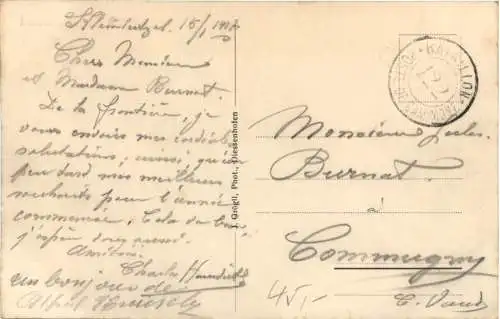 15/1 1917
Chers Monsieur
et Madame Burnat.
De la frontière, je
vous envoie mes cordiales
salutations, ainsi, qu'un
peu tard mes meilleurs
souhaits pour l'année
commencée, Cela va bien,
j'espère
Amitiés
Charles
un bonjour de
Alfred
J. Grögli, Phot., Diessenhofen
BATAILLON
122
Monsieur Jules
Burnat.
à
Commugny
Ct. Vaud
45,-